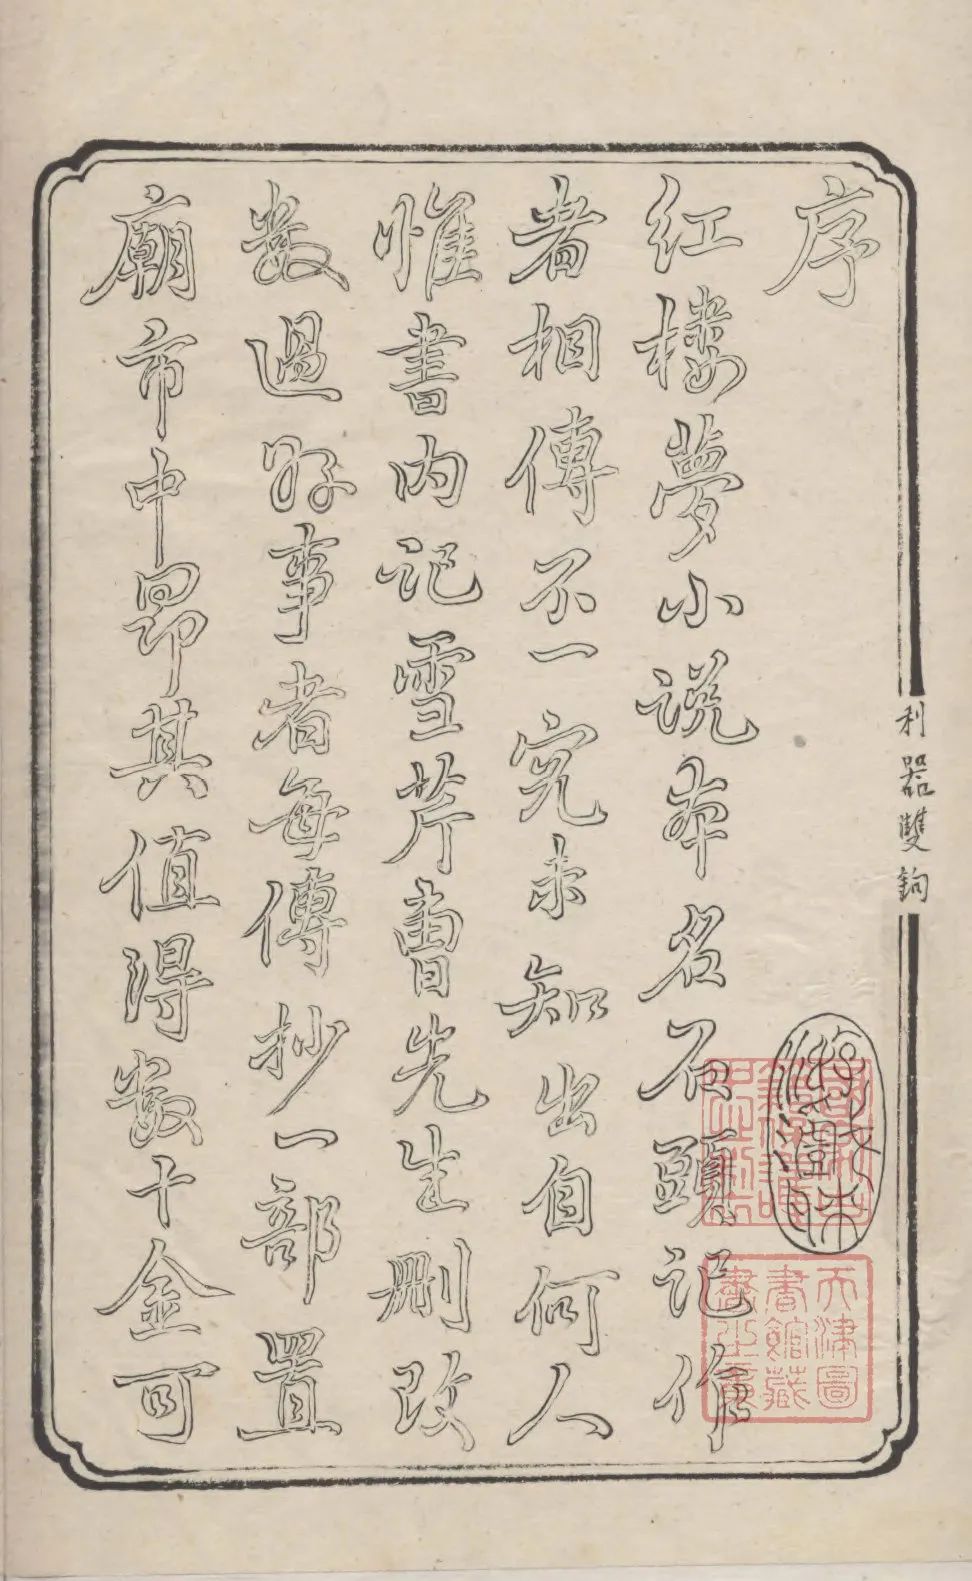 序
红楼夢小说本名石頭记作
者相傳不一究未知出自何人
惟書内记雪芹曹先生刪改
数過好事者每傳抄一部置
廟市中昂其值得数十金可
利器雙鉤
天津圖
書館藏
書之章